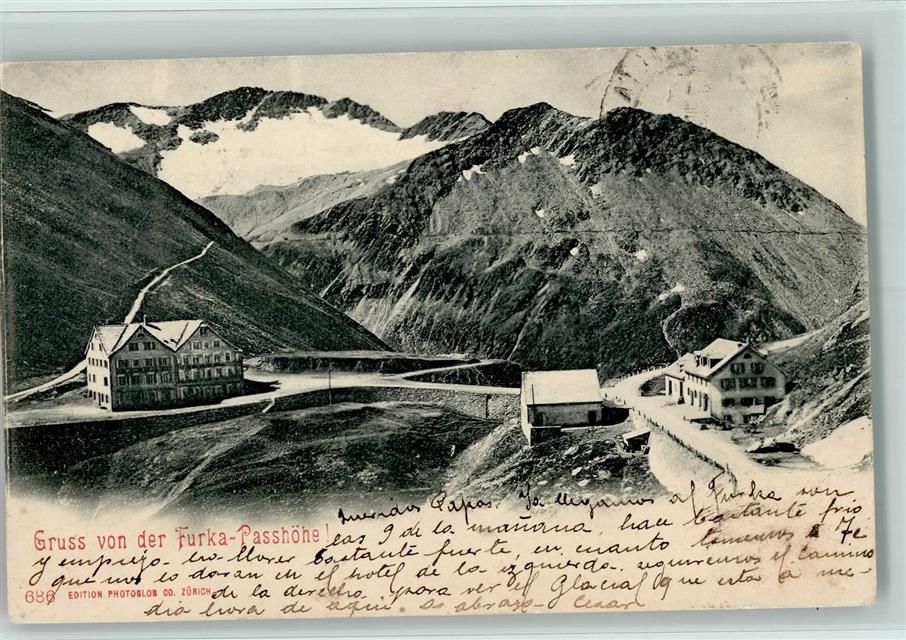 Gruss von der Furka-Passhöhe!
Queridos Papas. Ya llegamos al Furka son
las 9 de la mañana, hace bastante frio
y empieza llover bastante fuerte, en cuanto tomemos el Té
que nos lo daran en el hotel de la izquierda. seguiremos el camino
de la derecha, para ver el Glacial que esta a me-
dia hora de aqui. Os abraza Cesar
686 EDITION PHOTOGLOB CO. ZÜRICH